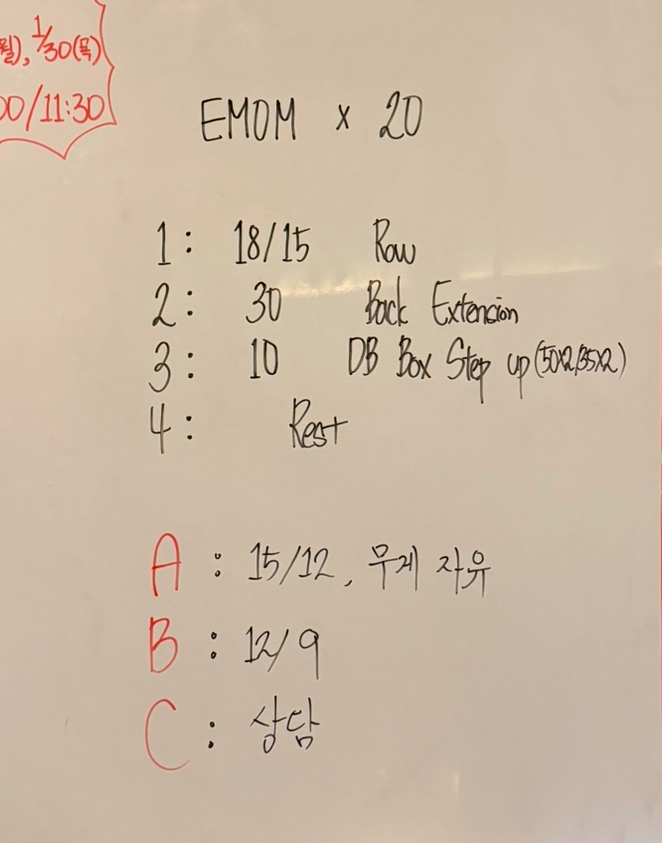 월), 1/30(목)
00/11:30
EMOM x 20
1: 18/15 Row
2: 30 Back Extension
3: 10 DB Box Step up (50x2/35x2)
4: Rest
A: 15/12, 무게 자유
B: 12/9
C: 상담